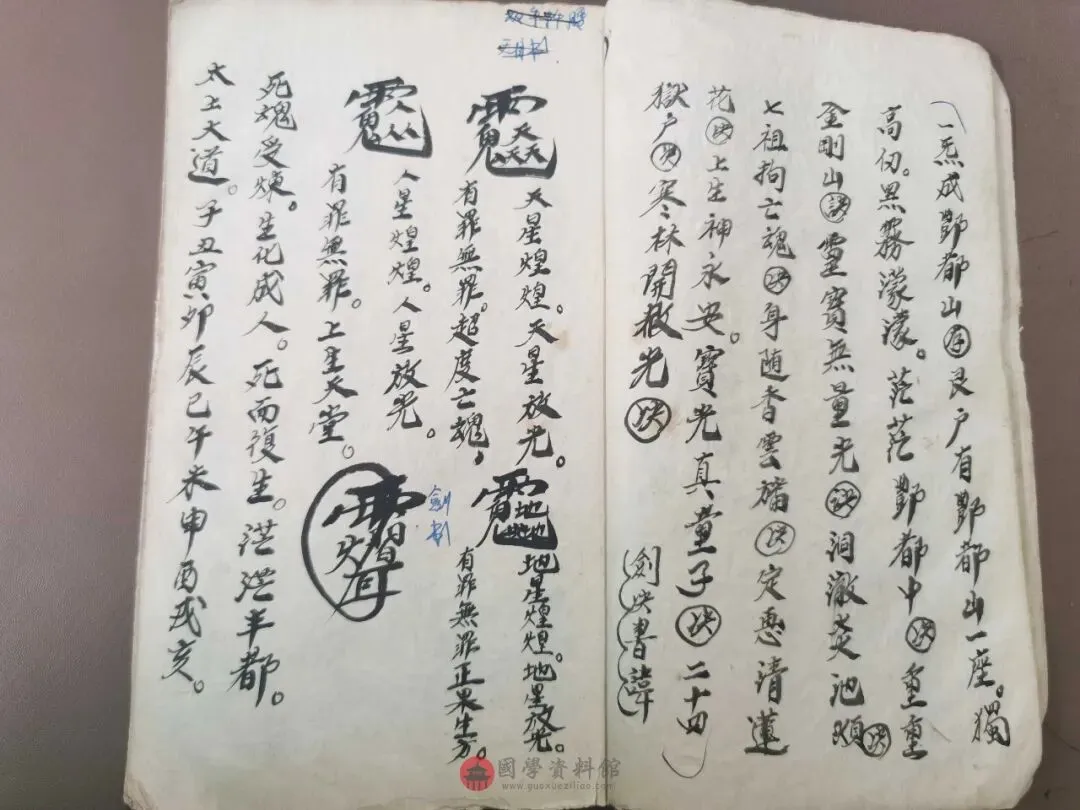 一炁成酆都山(存)艮户有酆都山一座。獨
高仞。黑霧濛濛。茫茫酆都中(訣)重重
金剛山(訣)靈寶無量光(訣)洞澈炎池煩(訣)
七祖拘亡魂(訣)身随香雲旛(訣)定惠清蓮
花(訣)上生神永安。寶光真童子(訣)二十四
獄户(訣)寒林開赦光(訣)
劍訣書諱
天星煌煌。天星放光。
有罪無罪。超度亡魂,
地星煌煌。地星放光。
有罪無罪正果生方。
劍
人星煌煌。人星放光。
有罪無罪。上生天堂。
死魂受煉。生化成人。死而復生。茫茫丰都。
太上大道。子丑寅卯辰巳午未申酉戌亥。
國學資料館
www.guoxueziliao.com